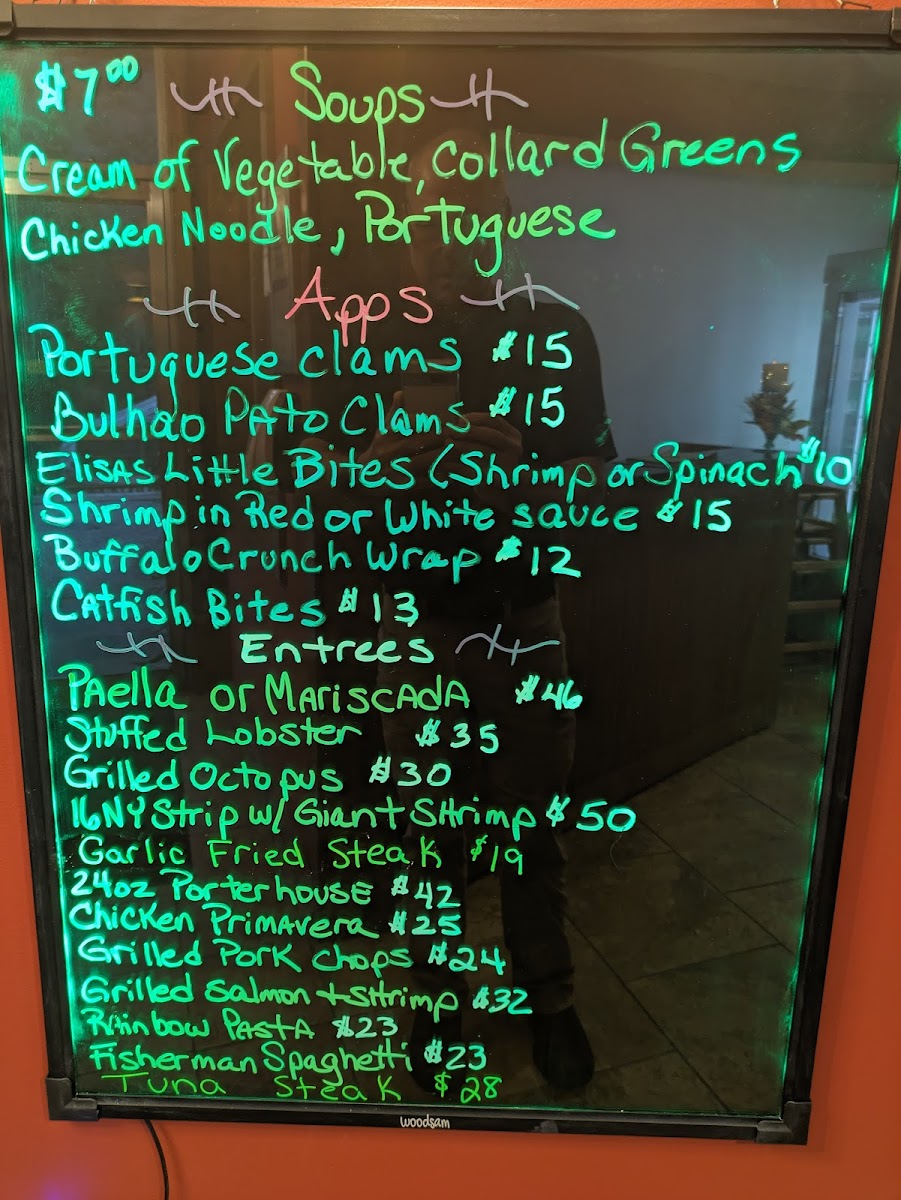 $7.00 Soups
Cream of Vegetable, Collard Greens
Chicken Noodle, Portuguese
Apps
Portuguese Clams $15
Bulhao Pato Clams $15
Elisas Little Bites (Shrimp or Spinach $10
Shrimp in Red or White sauce $15
Buffalo Crunch Wrap $12
Catfish Bites $13
Entrees
Paella or Mariscada $46
Stuffed Lobster $35
Grilled Octopus $30
16 NY Strip w/ Giant Shrimp $50
Garlic Fried Steak $19
24oz Porterhouse $42
Chicken Primavera $25
Grilled Pork Chops $24
Grilled Salmon + Shrimp $32
Rainbow Pasta $23
Fisherman Spaghetti $23
Tuna Steak $28
woodsam